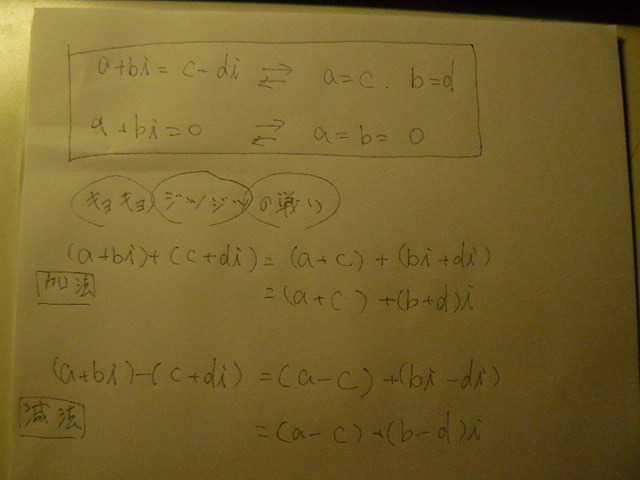 a+bi = c-di ⇄ a=c. b=d
a+bi=0 ⇄ a=b=0
キョキョ ジツジツ の戦い
(a+bi)+(c+di)=(a+c)+(bi+di)
加法
=(a+c)+(b+d)i
(a+bi)-(c+di)=(a-c)+(bi-di)
減法
=(a-c)+(b-d)i